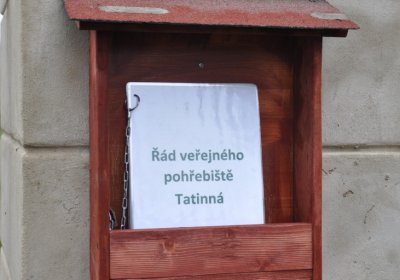 Řád veřejného
pohřebiště
Tatinná